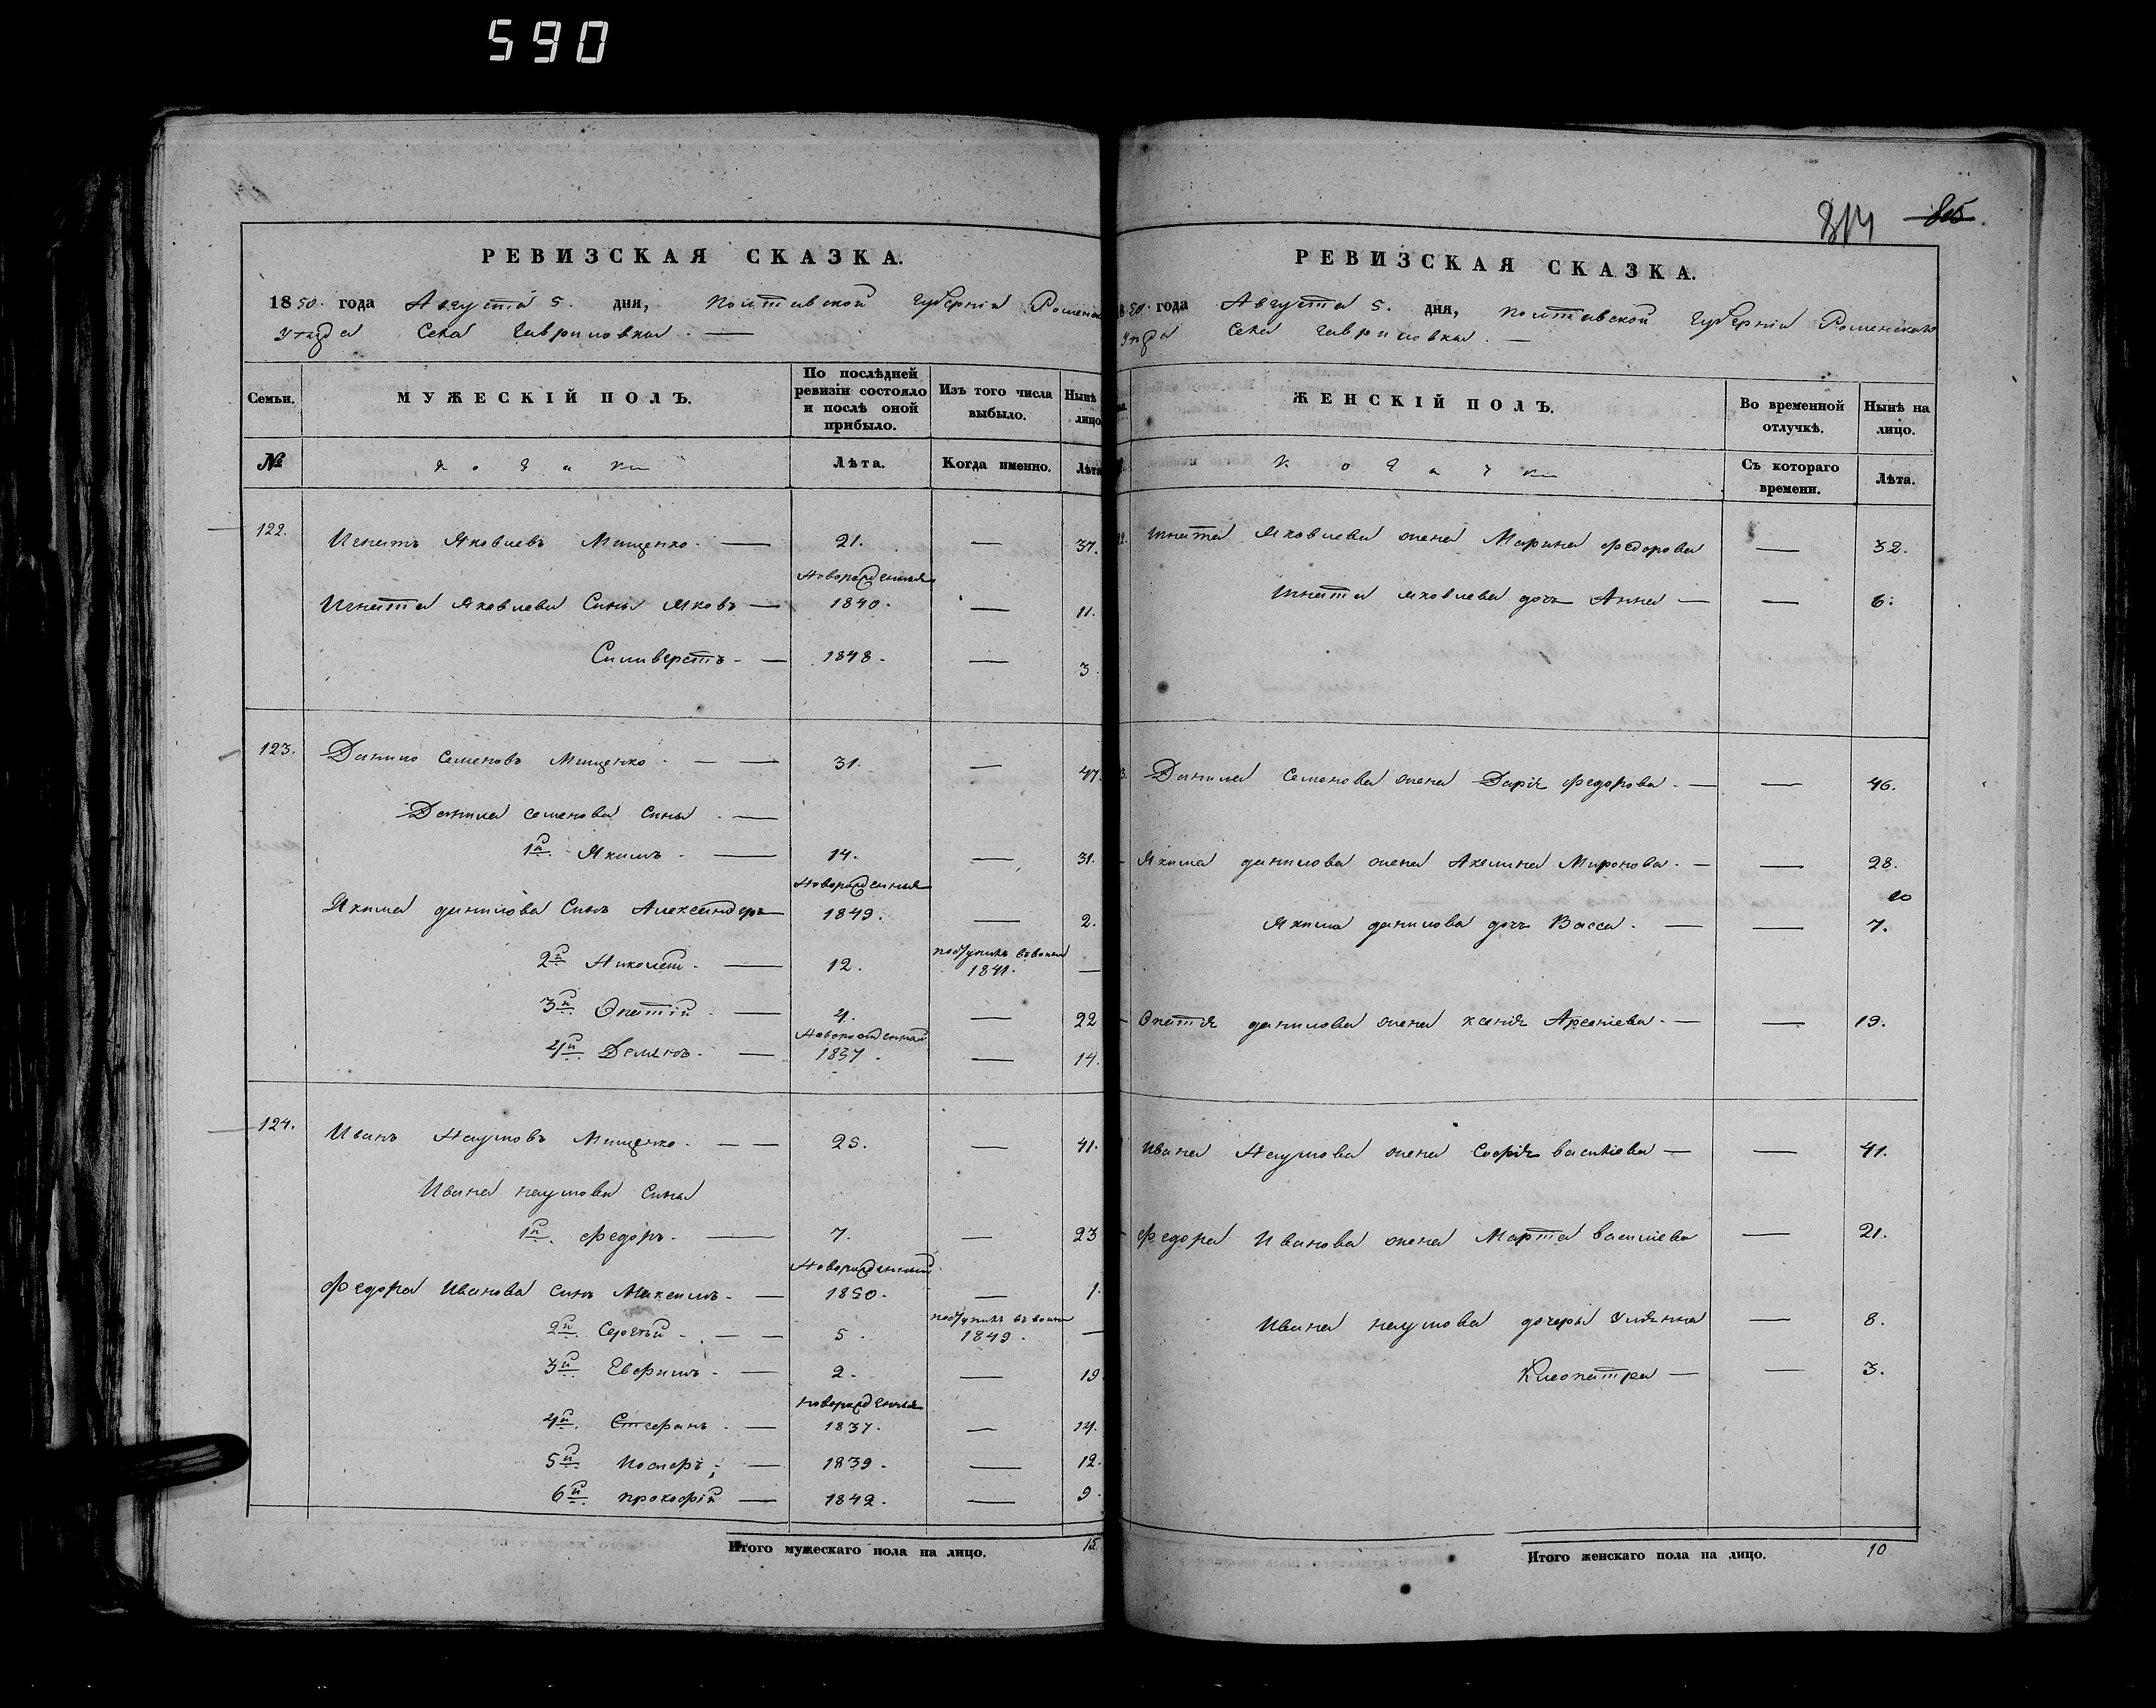 590
814 805
РЕВИЗСКАЯ СКАЗКА.
1850. года Августа 5. дня, Полтавской Губерніи Роменск
Уѣзда Села Гавриловки. —
Семьи. МУЖЕСКІЙ ПОЛЪ. По послѣдней ревизіи состояло и послѣ оной прибыло. Изъ того числа выбыло. Нынѣ лицо
№ Лѣта. Когда именно. Лѣта
122. Игнатъ Яковлевъ Мищенко. — 21. — 37.
Новорожденныя
Игната Яковлева Сынъ Яковъ — 1840. — 11.
Силиверстъ. — 1848. — 3.
123. Данило Семеновъ Мищенко. — — 31. — 47.
Данила Семенова Сыны. —
1й. Якимъ. — 14. — 31.
Новорожденныя
Якима Данилова Сынъ Александръ 1849. — 2.
2й. Николай. — 12. поступилъ въ 1841. —
3й. Опатій. — 4. — 22
Новорожденный
4й. Демянъ. — 1837. — 14.
124. Иванъ Наумовъ Мищенко. — — 25. — 41.
Ивана Наумова Сыны
1й. Федоръ. — 7. — 23
Новорожденный
Федора Иванова Сынъ Максимъ. — 1850. — 1.
2й. Сергѣй. — — 5. поступилъ въ 1849. —
3й. Евфимъ. — 2. — 19
новорожденныя
4й. Стефанъ. — 1837. — 14.
5й. Іосифъ; — 1839. — 12.
6й. Прокофій — 1842. — 9.
Итого мужескаго пола на лицо. 15.
РЕВИЗСКАЯ СКАЗКА.
850. года Августа 5. дня, Полтавской Губерніи Роменскаго
Уѣзда Села Гавриловки. —
ЖЕНСКІЙ ПОЛЪ. Во временной отлучкѣ. Нынѣ на лицо.
Съ котораго времени. Лѣта.
Игната Яковлева жена Марина Федорова — 32.
Игната Яковлева дочь Анна — — 6.
Данила Семенова жена Дарія Федорова. — — 46.
Якима Данилова жена Акелина Миронова. — — 28.
Якима Данилова дочь Васса. — — 7.
Опатія Данилова жена Ксенія Арсеніева. — — 19.
Ивана Наумова жена Софія Василіева — — 41.
Федора Иванова жена Марта Василіева — 21.
Ивана Наумова дочери Улянна — 8.
Клеопатра — — 3.
Итого женскаго пола на лицо. 10